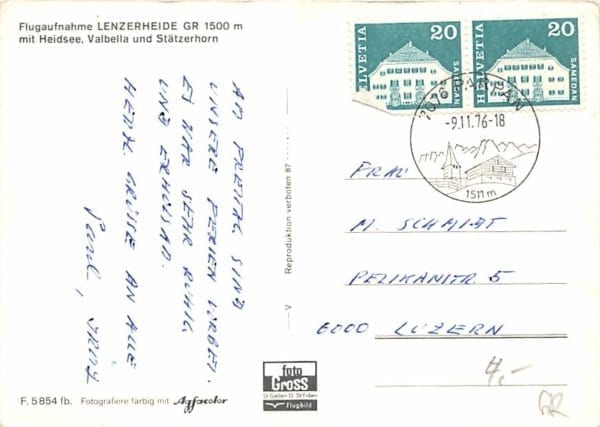 Flugaufnahme LENZERHEIDE GR 1500 m
mit Heidsee, Valbella und Stätzerhorn
AM FREITAG SIND
UNSERE FERIEN VORBEI.
ES WAR SEHR RUHIG
UND ERHOLSAM.
HERZL. GRÜSSE AN ALLE
Paul,
Reproduktion verboten 87
V
HELVETIA 20 SAMEDAN
HELVETIA 20 SAMEDAN
7076 PARPAN
-9.11.76-18
1511 m
FRAU
M. SCHMIDT
PELIKANSTR. 5
6000 LUZERN
4,-
GR
foto
GROSS
St Gallen O. St Fiden
Flugbild
F. 5854 fb. Fotografiere farbig mit Agfacolor